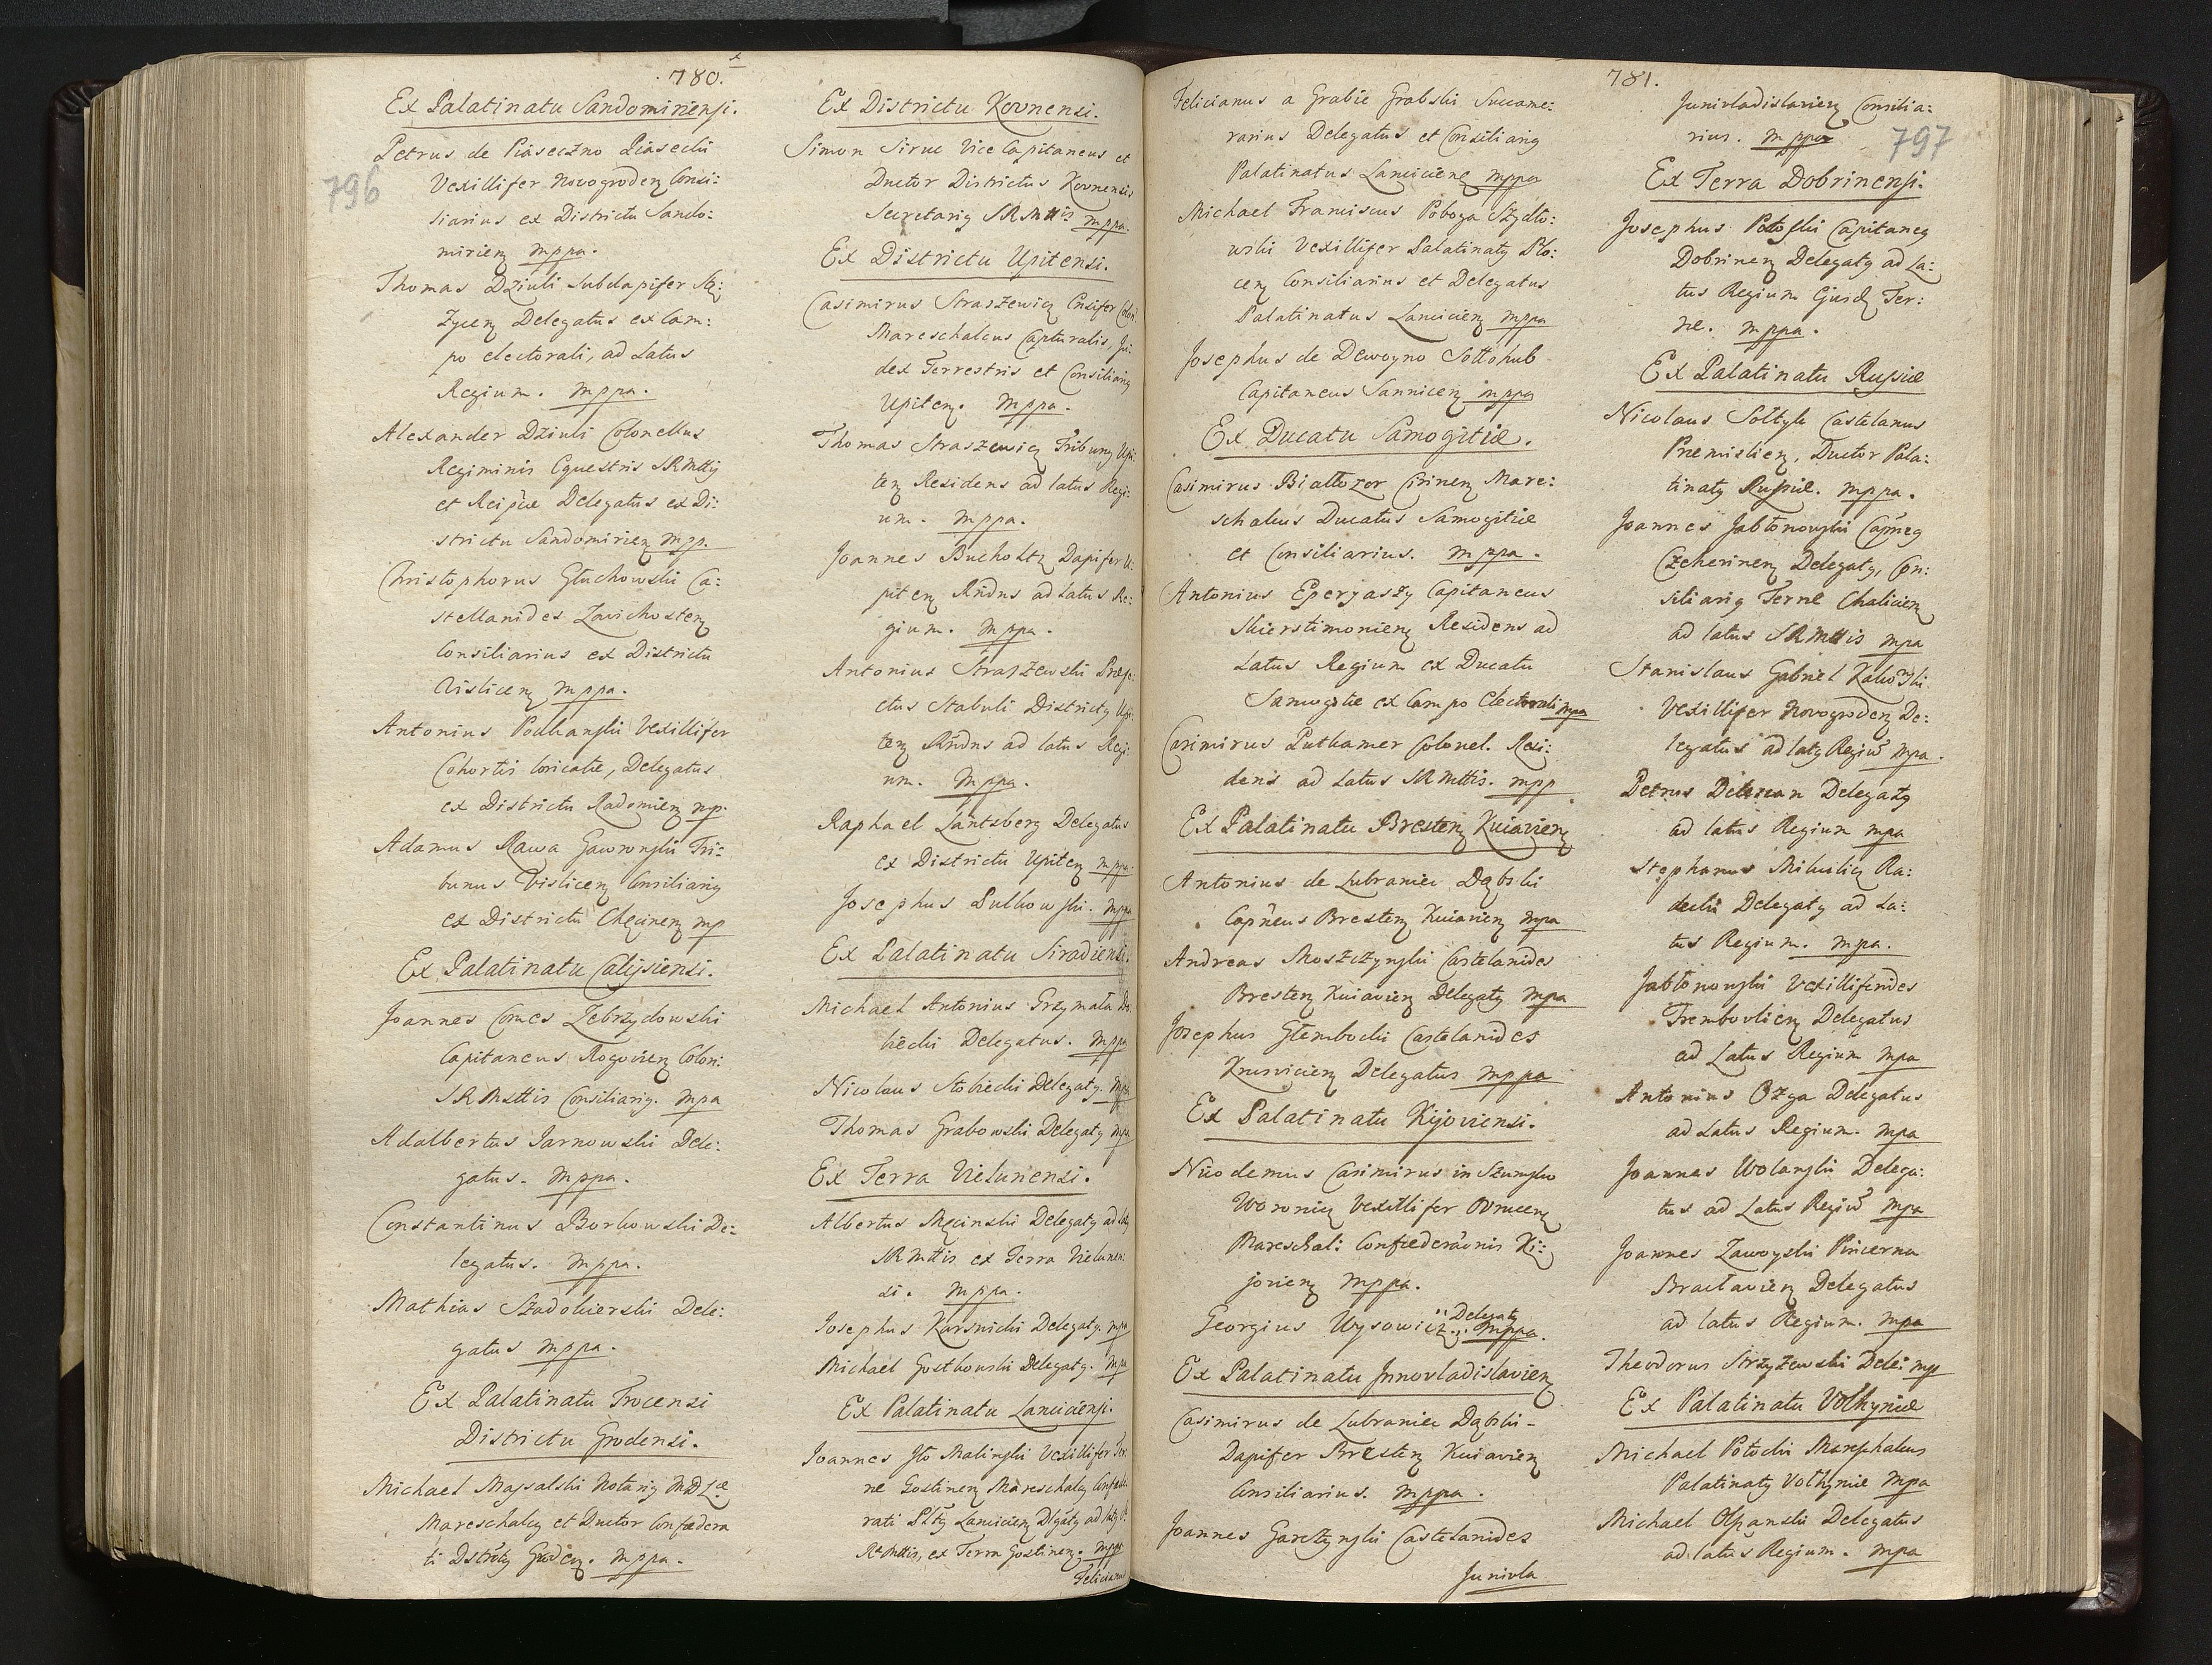 780.
796
Ex Palatinatu Sandomiriensi.
Petrus de Piaseczno Piasecki
Vexillifer Novogroden Consi:
liarius ex Districtu Sando:
mirien mppa.
Thomas Dziuli Subdapifer Stę:
życen Delegatus ex Cam:
po electorali, ad Latus
Regium. mppa.
Alexander Dziuli Colonellus
Regiminis Equestris SRMttis
et Reipcae Delegatus ex Di:
strictu Sandomirien mpp.
Christophorus Głuchowski Ca:
stellanides Zavichosten
Consiliarius ex Districtu
Vislicen mppa.
Antonius Podhanski Vexillifer
Cohortis loricatae, Delegatus
ex Districtu Radomien mp.
Adamus Rawa Gawronski Tri:
bunus Vislicen Consiliarig
ex Districtu Chęcinen mp
Ex Palatinatu Calissiensi.
Joannes Comes Zebrzydowski
Capitaneus Rogovien Colon:
SRMttis Consiliarig. mpa
Adalbertus Jarnowski Dele:
gatus. mppa.
Constantinus Borkowski De:
legatus. mppa.
Mathias Szadokierski Dele:
gatus mppa.
Ex Palatinatu Trocensi
Districtu Grodensi.
Michael Massalski Notarig MDLae
Mareschalcg et Ductor Confoedera
ti Dstrctg Groden. mppa.
Ex Districtu Kovnensi.
Simon Siruc Vice Capitaneus et
Ductor Districtus Kovnensis
Secretarig SRMttis mppa.
Ex Districtu Upitensi.
Casimirus Straszewicz Ensifer Colon:
Mareschalcus Capturalis, Ju:
dex Terrestris et Consiliarig
Upiten. mppa.
Thomas Straszewicz Tribung Upi:
ten Residens ad latus Regi:
um. mppa.
Joannes Bucholtz Dapifer U:
piten Rndns ad Latus Re:
gium. mppa.
Antonius Straszewski Praefe:
ctus Stabuli Districtg Upi:
ten Rndns ad latus Regi:
um. mppa.
Raphael Lantzberg Delegatus
ex Districtu Upiten mppa.
Josephus Sulkowski. mppa
Ex Palatinatu Siradiensi.
Michael Antonius Grzymała
Delegatus. mppa
Nicolaus Stobiecki Delegatg. mpa
Thomas Grabowski Delegatg mpa
Ex Terra Vielunensi.
Albertus Męcinski Delegatg ad Latg
SRMttis ex Terra Vielunen:
si. mppa.
Josephus Karsnicki Delegatg. mpa
Michael Gostkowski Delegatg. mpa
Ex Palatinatu Lanciciensi.
Joannes Malinski Vexillifer Ter:
rae Gostinen Mareschalcg Confoede
rati Pltg Lancicien Dlgatg ad latg
RMttis, ex Terra Gostinen. mppa
Felicianus
781.
797
Felicianus a Grabie Grabski Succame:
rarius Delegatus et Consiliarig
Palatinatus Lancicien mppa
Michael Franciscus Poboga Szydło:
wski Vexillifer Palatinatg Plo:
cen Consiliarius et Delegatus
Palatinatus Lancicien mppa
Josephus de Dewoyno Sottohub
Capitaneus Sannicen mppa
Ex Ducatu Samogitiae.
Casimirus Biallozor Cirinen Mare:
schalcus Ducatus Samogitiae
et Consiliarius. mppa.
Antonius Eperjaszy Capitaneus
Skierstimonien Residens ad
Latus Regium ex Ducatu
Samogitiae ex Campo Electorali mpa
Casimirus Puthamer Colonel. Resi:
dens ad Latus SRMttis. mpp
Ex Palatinatu Bresten Kuiavien
Antonius de Lubraniec Dąbski
Capneus Bresten Kuiavien mpa
Andreas Moszczynski Castelanides
Bresten Kuiavien Delegatg mpa
Josephus Głembocki Castelanides
Krusvicien Delegatus mppa
Ex Palatinatu Kijoviensi.
Nicodemus Casimirus in Szumsko
Woronicz Vexillifer Ovrucen
Mareschal: Confoederaonis Ki:
jovien mppa.
Georgius Wysowicz Delegatg mppa.
Ex Palatinatu Junovladislavien
Casimirus de Lubraniec Dąbski
Dapifer Bresten Kuiavien
Consiliarius. mppa.
Joannes Garczynski Castelanides
Junivla
Junivladislavien Consilia:
rius. mppa
Ex Terra Dobrinensi.
Josephus Potoski Capitaneg
Dobrinen Delegatg ad La:
tus Regium Ejusd Ter:
rae. mppa.
Ex Palatinatu Russiae
Nicolaus Soltyk Castelanus
Premislien, Ductor Pala:
tinatg Russiae. mppa.
Joannes Jabłonowski Capneg
Czehrinen Delegatg, Con:
siliarig Terrae Chalicien
ad latus SRMttis mpa
Stanislaus Gabriel Kakowski
Vexillifer Novogroden De:
legatus ad latg Regiu mpa.
Petrus Delegatg
ad latus Regium mpa
Stephanus Mikulicz Ra:
decki Delegatg ad La:
tus Regium. mpa.
Jabłonowski Vexilliferides
Trembovlien Delegatus
ad Latus Regium mpa
Antonius Ożga Delegatus
ad Latus Regium. mpa
Joannes Wolanski Delega:
tus ad Latus Regiu mpa
Joannes Zawoyski Pincerna
Bracłavien Delegatus
ad latus Regium. mpa
Theodorus Strzyżewski Dele: mp
Ex Palatinatu Volhyniae
Michael Potocki Marschalcus
Palatinatg Volhyniae mpa
Michael Olszanski Delegatus
ad latus Regium. mpa